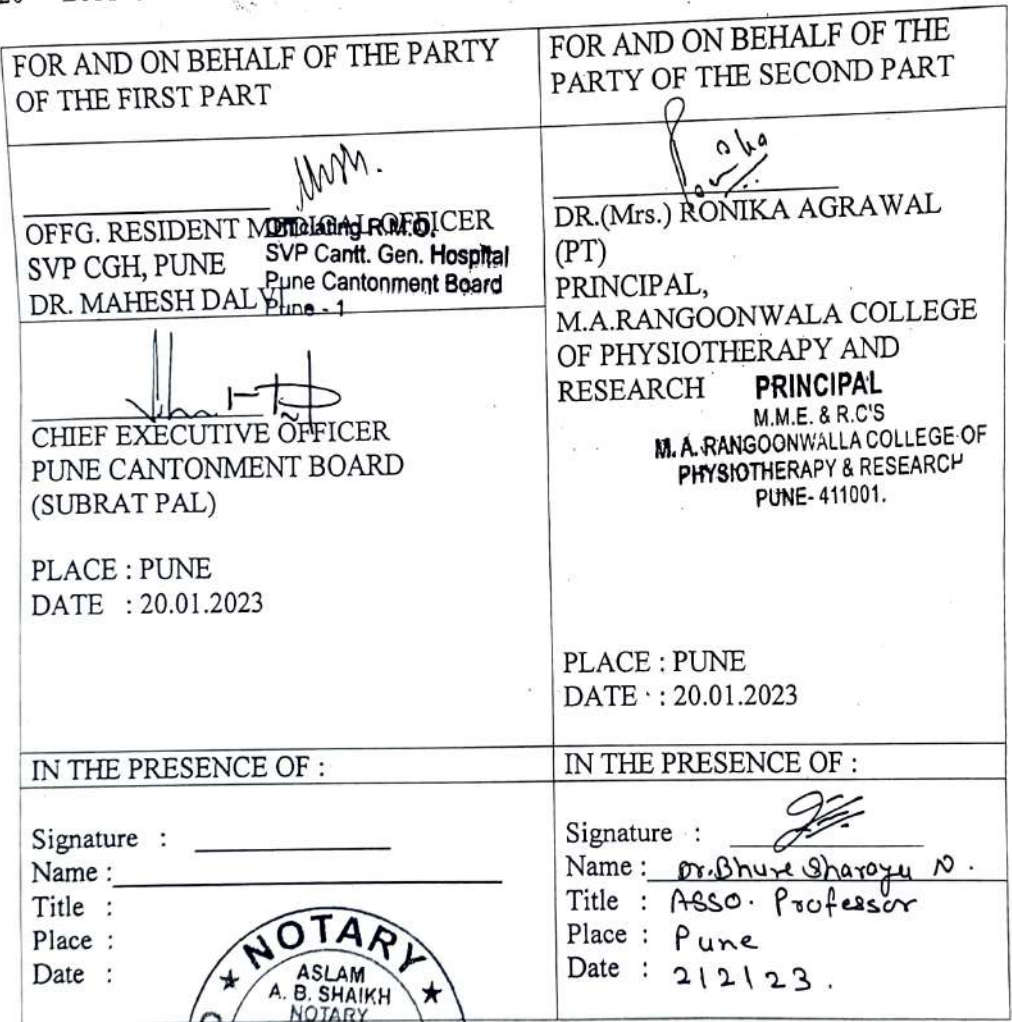 FOR AND ON BEHALF OF THE PARTY
OF THE FIRST PART
OFFG. RESIDENT MEDICAL OFFICER
SVP CGH, PUNE
DR. MAHESH DALVI
Officiating R.M.O.
SVP Cantt. Gen. Hospital
Pune Cantonment Board
Pune - 1
CHIEF EXECUTIVE OFFICER
PUNE CANTONMENT BOARD
(SUBRAT PAL)
PLACE : PUNE
DATE : 20.01.2023
FOR AND ON BEHALF OF THE
PARTY OF THE SECOND PART
DR.(Mrs.) RONIKA AGRAWAL
(PT)
PRINCIPAL,
M.A.RANGOONWALA COLLEGE
OF PHYSIOTHERAPY AND
RESEARCH
PRINCIPAL
M.M.E. & R.C'S
M. A. RANGOONWALLA COLLEGE OF
PHYSIOTHERAPY & RESEARCH
PUNE- 411001.
PLACE : PUNE
DATE : 20.01.2023
IN THE PRESENCE OF :
Signature :
Name :
Title :
Place :
Date :
NOTARY
ASLAM
A. B. SHAIKH
NOTARY
IN THE PRESENCE OF :
Signature :
Name : Dr. Bhure Sharayu N.
Title : ASSO. Professor
Place : Pune
Date : 2|2|23.